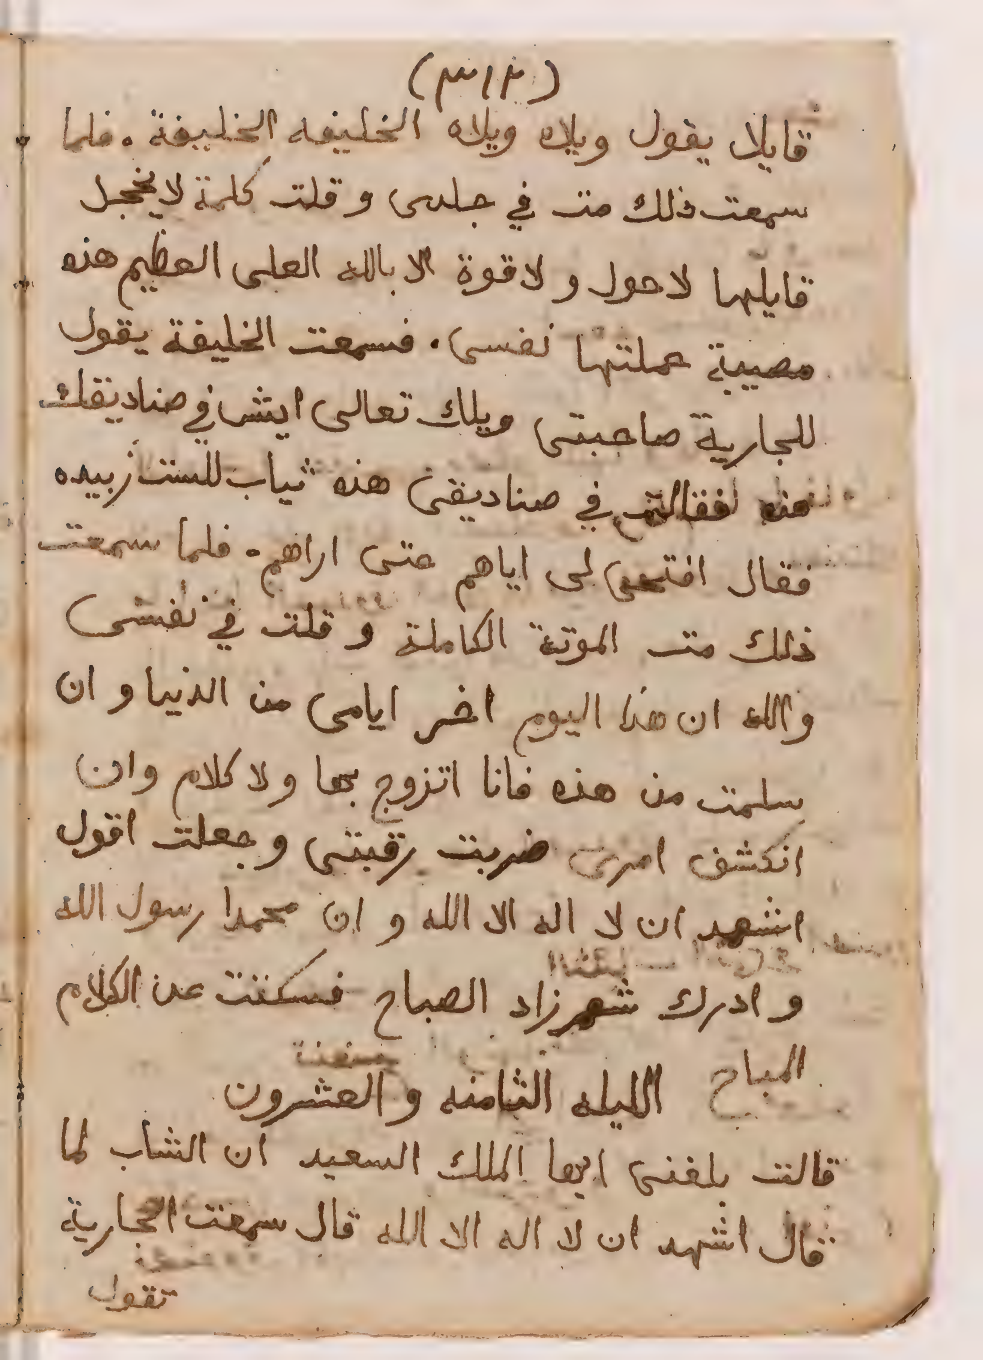 (٣١٢)
قايلا يقول ويلاه ويلاه الخليفه الخليفة . فلما
سمعت ذلك مت في جلدى و قلت كلمة لا يخجل
قايلها لا حول و لا قوة الا بالله العلى العظيم هذه
مصيبة عملتها نفسى . فسمعت الخليفة يقول
للجارية صاحبتى ويلك تعالى ايش في صناديقك
هذه فقالت في صناديقى هذه ثياب للست زبيده
فقال افتحى لى اياهم حتى اراهم . فلما سمعت
ذلك مت الموتة الكاملة و قلت في نفسى
والله ان هذا اليوم اخر ايامى من الدنيا و ان
سلمت من هذه فانا اتزوج بها ولا كلام وان
انكشف امرى ضربت رقبتى و جعلت اقول
اشهد ان لا اله الا الله و ان محمدا رسول الله
و ادرك شهرزاد الصباح فسكتت عن الكلام
المباح الليله الثامنه و العشرون
قالت بلغنى ايها الملك السعيد ان الشاب لما
قال اشهد ان لا اله الا الله قال سمعت الجارية
تقول